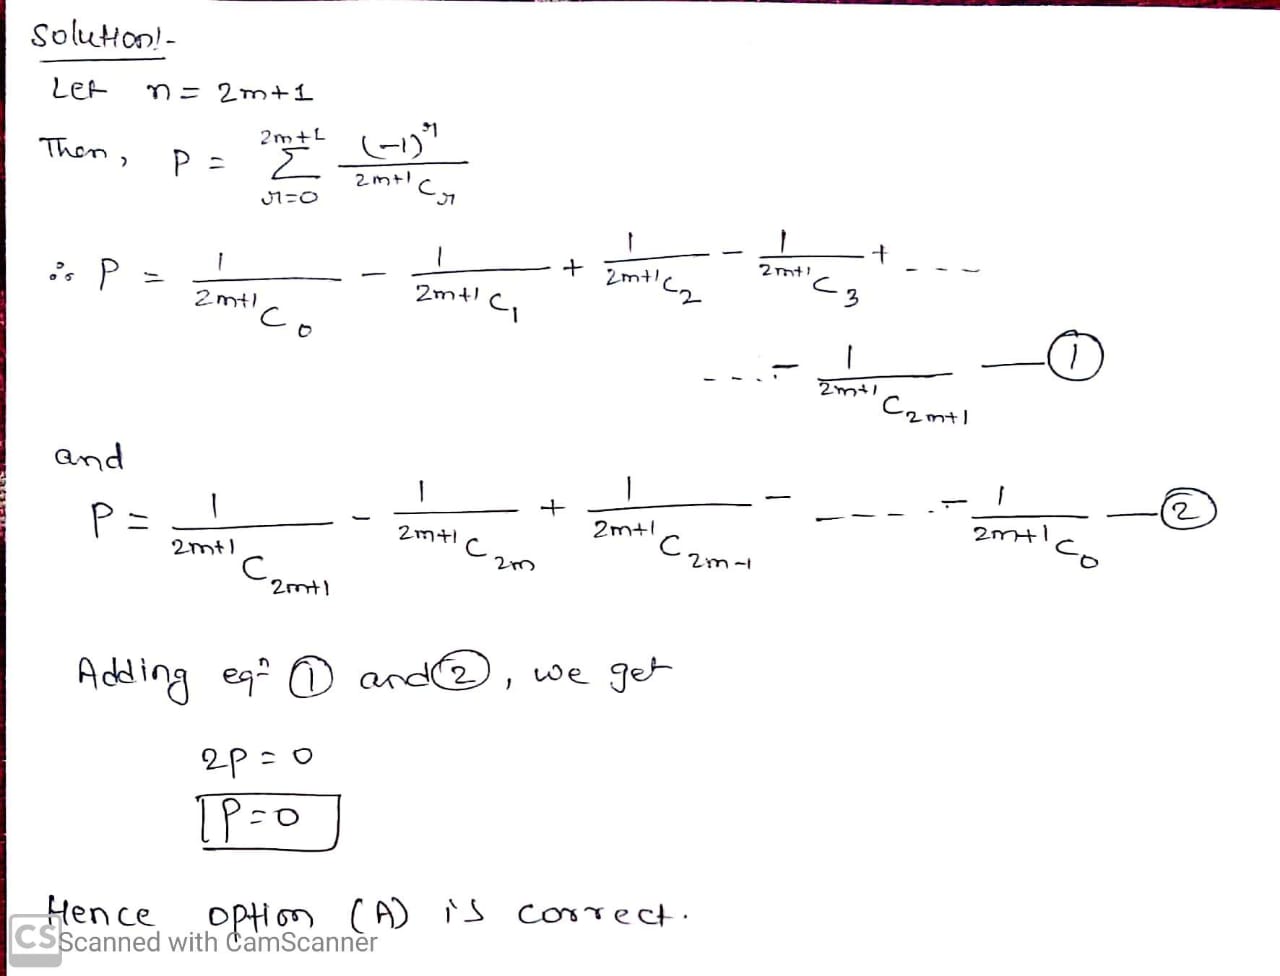 Solution:-
Let n = 2m+1
Then, P = 2m+1 Σ r=0 (-1)^r / 2m+1 C r
∴ P = 1/2m+1 C 0 - 1/2m+1 C 1 + 1/2m+1 C 2 - 1/2m+1 C 3 + ---
---- 1/2m+1 C 2m+1 — ①
and
P = 1/2m+1 C 2m+1 - 1/2m+1 C 2m + 1/2m+1 C 2m-1 - ---- - 1/2m+1 C 0 — ②
Adding eqⁿ ① and ②, we get
2P = 0
P = 0
Hence option (A) is correct.
CS Scanned with CamScanner